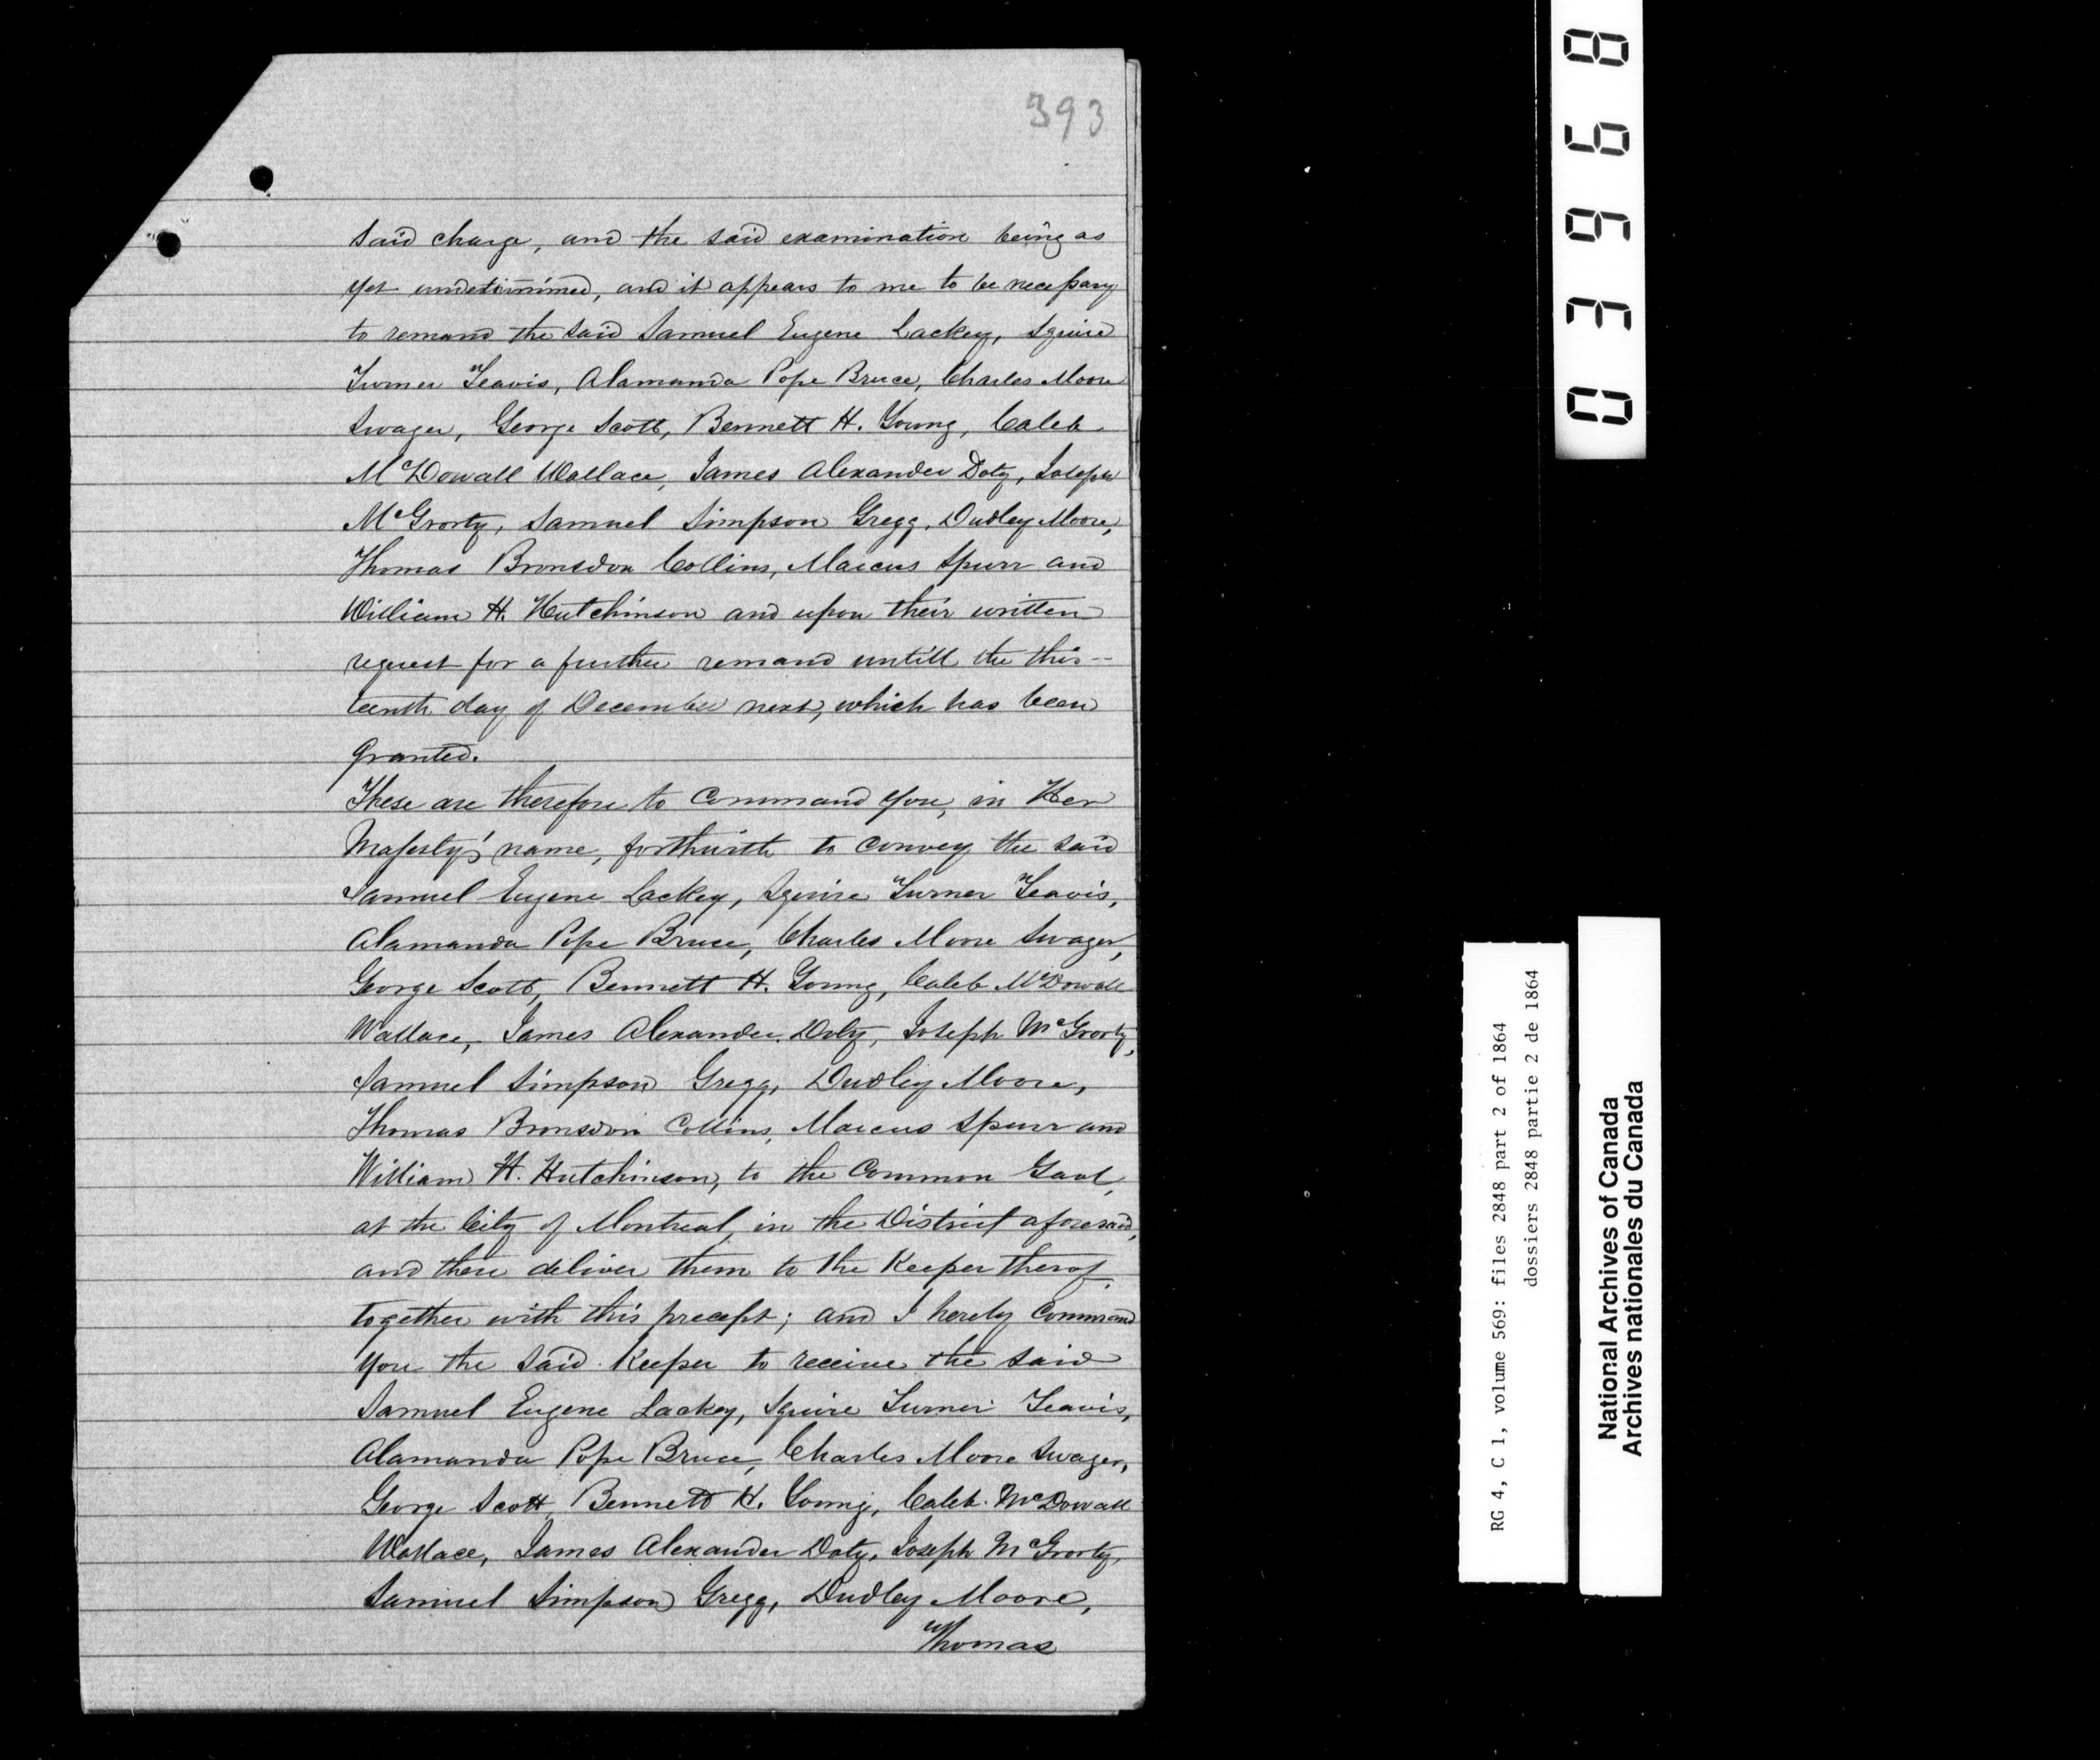 393
said charge, and the said examination being as
yet undetirmined, and it appears to me to be necessary
to remand the said Samuel Eugene Lackey, Squire
Turner Teavis, Alamanda Pope Bruce, Charles Moore
Swager, George Scott, Bennett H. Young, Caleb
McDowall Wallace, James Alexander Doty, Joseph
McGrorty, Samuel Simpson Gregg, Dudley Moore,
Thomas Bronsdon Collins, Marcus Spurr and
William H. Hutchinson and upon their written
request for a further remand untill the thir-
teenth day of December next, which has been
granted.
These are therefore to Command you, in Her
Majesty's name, forthwith to convey the said
Samuel Eugene Lackey, Squire Turner Teavis,
Alamanda Pope Bruce, Charles Moore Swager,
George Scott, Bennett H. Young, Caleb McDowall
Wallace, James Alexander Doty, Joseph McGrorty,
Samuel Simpson Gregg, Dudley Moore,
Thomas Bronsdon Collins, Marcus Spurr and
William H. Hutchinson, to the Common Gaol,
at the City of Montreal, in the District aforesaid,
and there deliver them to the Keeper therof,
together with this precept; and I hereby Command
you the said Keeper to receive the said
Samuel Eugene Lackey, Squire Turner Teavis,
Alamanda Pope Bruce, Charles Moore Swager,
George Scott, Bennett H. Young, Caleb McDowall
Wallace, James Alexander Doty, Joseph McGrorty,
Samuel Simpson Gregg, Dudley Moore,
Thomas
03968
RG 4, C 1, volume 569: files 2848 part 2 of 1864
dossiers 2848 partie 2 de 1864
National Archives of Canada
Archives nationales du Canada